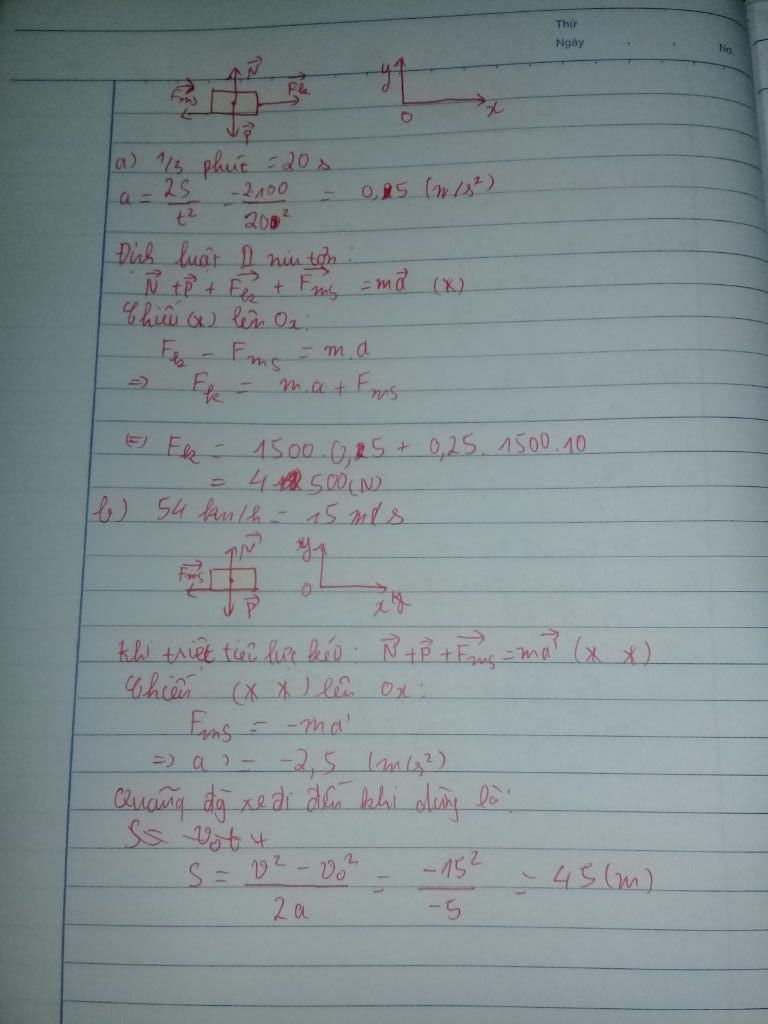 Thứ
Ngày . . No.
N
Fms Fk y
P O x
a) 1/3 phút = 20 s
a = 2S/t² = 2.100/20² = 0,5 (m/s²)
Định luật II niu tơn:
N + P + Fk + Fms = ma (*)
Chiếu (*) lên Ox:
Fk - Fms = m.a
=> Fk = m.a + Fms
(=) Fk = 1500.0,5 + 0,25.1500.10
= 4500 (N)
b) 54 km/h = 15 m/s
N y
Fms O
P x
Khi triệt tiêu lực kéo: N + P + Fms = ma' (* *)
Chiếu (* *) lên Ox:
Fms = -ma'
=> a' = -2,5 (m/s²)
Quãng đg xe đi đến khi dừng là:
S = v₀t +
S = (v² - v₀²)/2a = -15²/-5 = 45 (m)